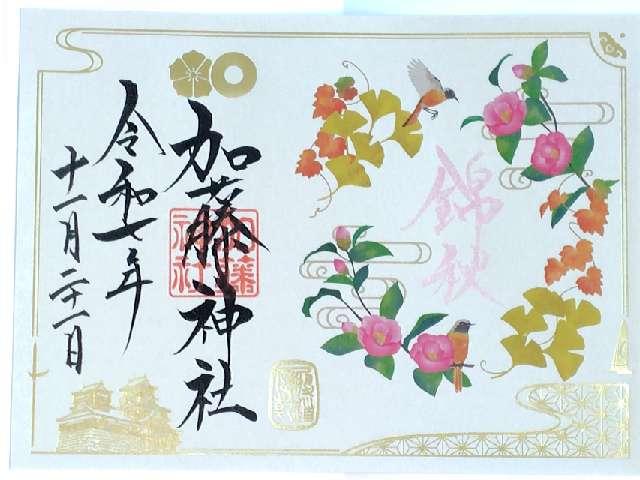 錦秋
加藤神社
加藤神社
令和七年
十一月二十一日